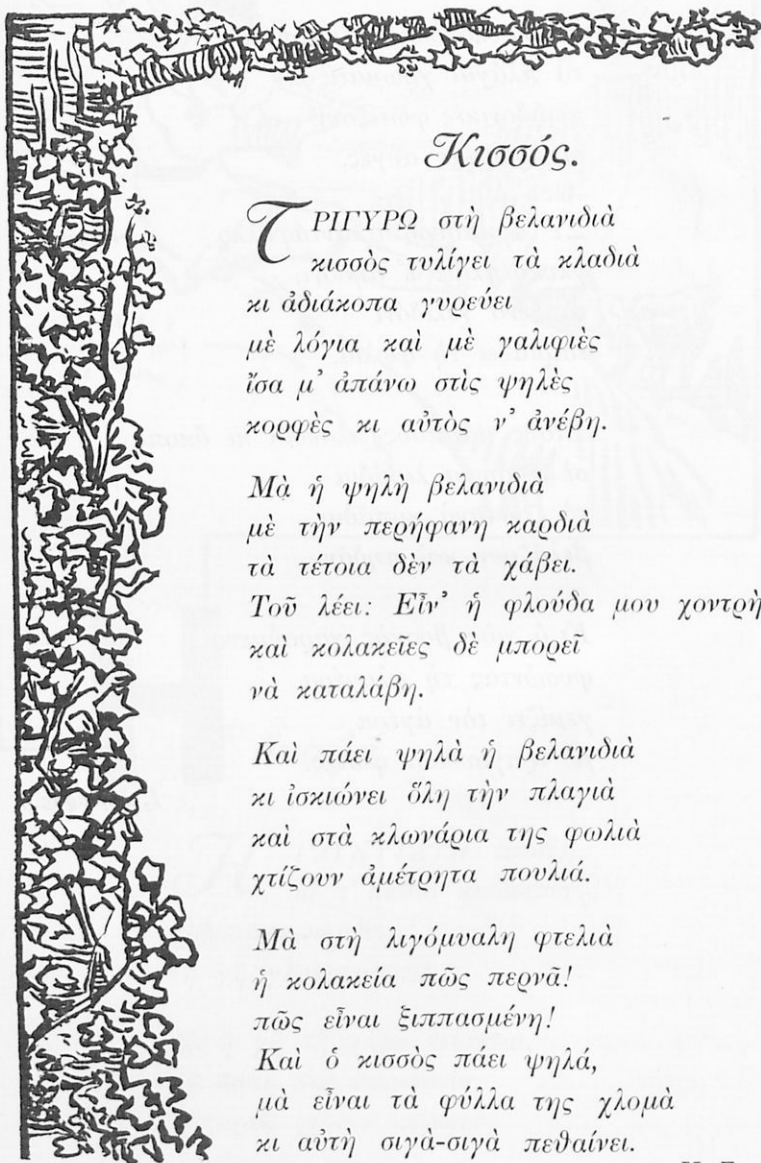 Κισσός.
ΤΡΙΓΥΡΩ στὴ βελανιδιὰ
κισσὸς τυλίγει τὰ κλαδιὰ
κι ἀδιάκοπα γυρεύει
μὲ λόγια καὶ μὲ γαλιφιὲς
ἴσα μ' ἀπάνω στὶς ψηλὲς
κορφὲς κι αὐτὸς ν' ἀνέβη.
Μὰ ἡ ψηλὴ βελανιδιὰ
μὲ τὴν περήφανη καρδιὰ
τὰ τέτοια δὲν τὰ χάβει.
Τοῦ λέει: Εἶν' ἡ φλούδα μου χοντρὴ
καὶ κολακεῖες δὲ μπορεῖ
νὰ καταλάβη.
Καὶ πάει ψηλὰ ἡ βελανιδιὰ
κι ἰσκιώνει ὅλη τὴν πλαγιὰ
καὶ στὰ κλωνάρια της φωλιὰ
χτίζουν ἀμέτρητα πουλιά.
Μὰ στὴ λιγόμυαλη φτελιὰ
ἡ κολακεία πῶς περνᾶ!
πῶς εἶναι ξιππασμένη!
Καὶ ὁ κισσὸς πάει ψηλά,
μὰ εἶναι τὰ φύλλα της χλομὰ
κι αὐτὴ σιγὰ-σιγὰ πεθαίνει.